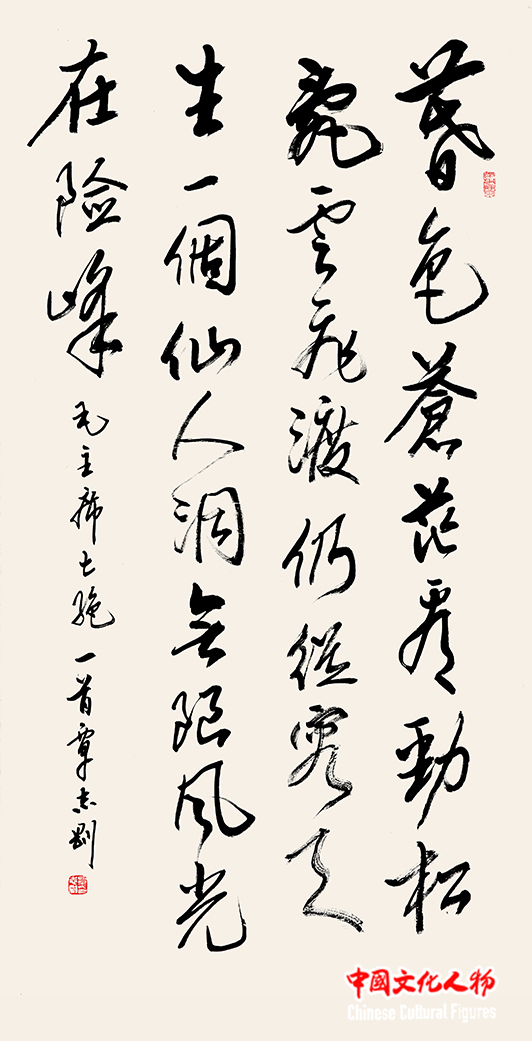 暮色蒼茫看勁松
亂雲飛渡仍從容天
生一個仙人洞無限风光
在险峰
毛主席七绝一首覃志剛
中國文化人物
Chinese Cultural Figures